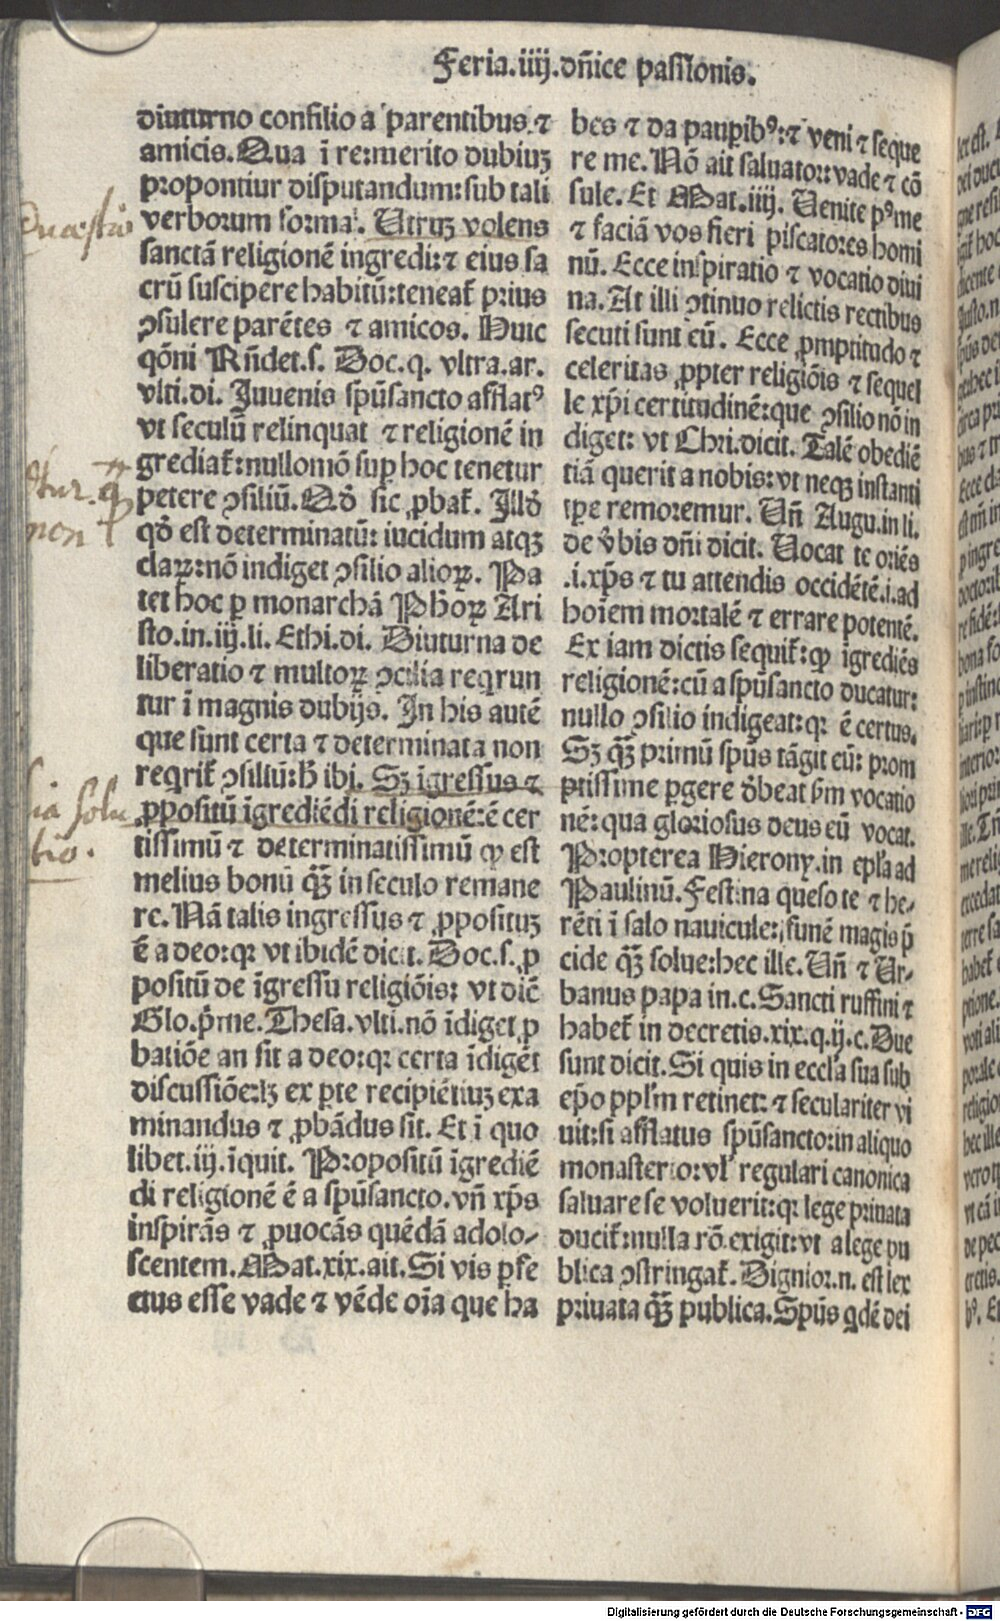 Feria.iiij.dn̄ice passionis.
diuturno consilio a parentibus ⁊
amicis. Qua ī re:merito dubiuꝫ
propontiur disputandum:sub tali
verborum forma. Utruꝫ volens
sanctā religionē ingredi:⁊ eius sa
crū suscipere habitū:teneat̄ prius
ꝯsulere parētes ⁊ amicos. Huic
qōni Rn̄det.s. Doc.q. vltra.ar.
vlti.di. Juuenis spūsancto afflatꝰ
vt seculū relinquat ⁊ religionē in
grediat̄:nullomō suꝑ hoc tenetur
petere ꝯsiliū. Qḋ sic ꝓbat̄. Illḋ
qḋ est determinatū: iucidum atqꝫ
claꝝ:nō indiget ꝯsilio alioꝝ. Pa
tet hoc ꝑ monarchā Ph̄oꝝ Ari
sto.in.iij.li. Ethi.di. Diuturna de
liberatio ⁊ multoꝝ ꝯcilia reqrun
tur ī magnis dubijs. In his autē
que sunt certa ⁊ determinata non
reqrit̄ ꝯsiliū:h̄ ibi. Sꝫ īgressus ⁊
ꝓpositū īgrediēdi religionē:ē cer
tissimū ⁊ determinatissimū ꝙ est
melius bonū qꝫ̄ in seculo remane
re. Nā talis ingressus ⁊ ꝓposituꝫ
ē a deo:qꝛ vt ibidē dicit. Doc.s. ꝓ
positū de īgressu religiōis: vt dic̄
Glo.p̄me. Thesa.vlti.nō īdiget ꝓ
batiōe an sit a deo:qꝛ certa īdigēt
discussiōe:lꝫ ex ꝑte recipiētiuꝫ exa
minandus ⁊ ꝓbādus sit. Et ī quo
libet.iij.īquit. Propositū īgrediē
di religionē ē a spūsancto.vn̄ xp̄s
inspirās ⁊ ꝓuocās quēdā adolo-
scentem. Mat.xix.ait. Si vis ꝑfe
ctus esse vade ⁊ vēde oīa que ha
bes ⁊ da pauꝑibꝰ:⁊ veni ⁊ seque
re me. Nō ait saluator: vade ⁊ cō
sule. Et Mat.iiij. Uenite pꝰ me
⁊ faciā vos fieri piscatores homi
nū. Ecce inspiratio ⁊ vocatio diui
na. At illi ꝯtinuo relictis rectibus
secuti sunt eū. Ecce ꝓmptitudo ⁊
celeritas ꝓpter religiōis ⁊ sequel
le xp̄i certitudinē:que ꝯsilio nō in
diget: vt Chri.dicit. Talē obediē
tiā querit a nobis: vt neqꝫ instanti
tꝑe remoremur. Un̄ Augu.in li.
de v̇bis dn̄i dicit. Uocat te oriēs
.i.xp̄s ⁊ tu attendis occidētē.i.ad
hoīem mortalē ⁊ errare potentē.
Ex iam dictis sequit̄:ꝙ igrediēs
religionē:cū a spūsancto ducatur:
nullo ꝯsilio indigeat:qꝛ ē certus.
Sꝫ qꝫ̄ primū spūs tāgit eū: prom
ptissime ꝑgere ḋbeat ẜm vocatio
nē: qua gloriosus deus eū vocat.
Propterea Hierony.in epl̄a ad
Paulinū. Festina queso te ⁊ he-
rēti ī salo nauicule:funē magis p̄
cide qꝫ̄ solue:hec ille. Un̄ ⁊ Ur-
banus papa in.c. Sancti ruffini ⁊
habet̄ in decretis.xix.q.ij.c. Due
sunt dicit. Si quis in eccl̄a sua sub
ep̄o ppl̄m retinet: ⁊ seculariter vi
uit:si afflatus spūsancto:in aliquo
monasterio:vl̄ regulari canonica
saluare se voluerit:qꝛ lege priuata
ducit̄:nulla rō.exigit:vt a lege pu
blica ꝯstringat̄. Dignior.n. est lex
priuata qꝫ̄ publica. Spūs qdē dei
Quæstio
non
solu
tio.
Digitalisierung gefördert durch die Deutsche Forschungsgemeinschaft - DFG